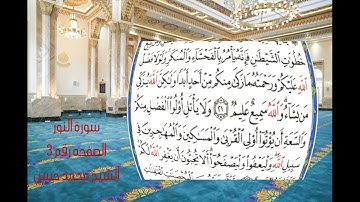 خُطُوَٰتِ ٱلشَّيْطَٰنِ فَإِنَّهُۥ يَأْمُرُ بِٱلْفَحْشَآءِ وَٱلْمُنكَرِ وَلَوْلَا فَضْلُ
ٱللَّهِ عَلَيْكُمْ وَرَحْمَتُهُۥ مَا زَكَىٰ مِنكُم مِّنْ أَحَدٍ أَبَدًا وَلَٰكِنَّ ٱللَّهَ يُزَكِّى
مَن يَشَآءُ وَٱللَّهُ سَمِيعٌ عَلِيمٌ ٢١ وَلَا يَأْتَلِ أُو۟لُوا۟ ٱلْفَضْلِ مِنكُمْ
وَٱلسَّعَةِ أَن يُؤْتُوٓا۟ أُو۟لِى ٱلْقُرْبَىٰ وَٱلْمَسَٰكِينَ وَٱلْمُهَٰجِرِينَ فِى
سَبِيلِ ٱللَّهِ وَلْيَعْفُوا۟ وَلْيَصْفَحُوٓا۟ أَلَا تُحِبُّونَ أَن يَغْفِرَ ٱللَّهُ لَكُمْ
سورة النور
الصفحه رقم 3
الشيخ محمد